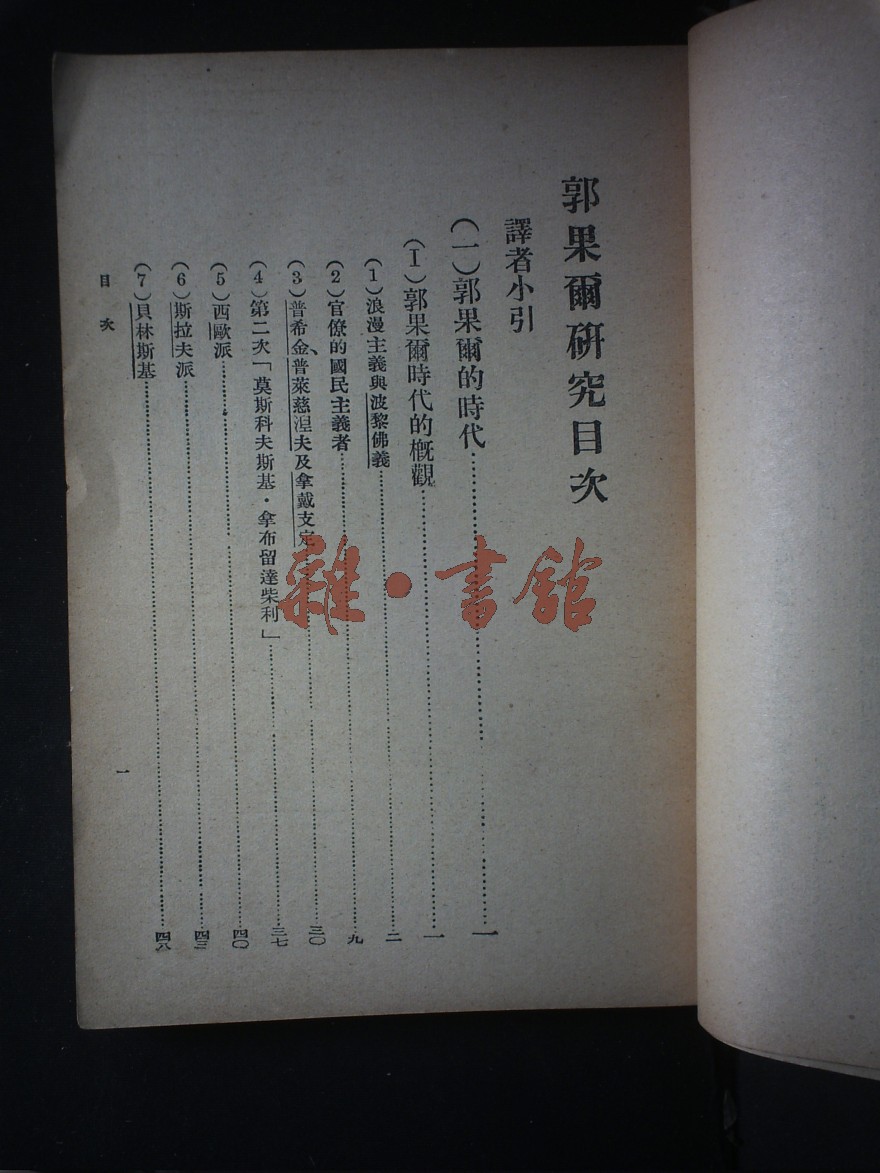 郭果爾研究目次
譯者小引
(一)郭果爾的時代……一
(I)郭果爾時代的概觀……一
(1)浪漫主義與波黎佛義……二
(2)官僚的國民主義者……九
(3)普希金、普萊慈涅夫及拿戴支定……三〇
(4)第二次「莫斯科夫斯基・拿布留達柴利」……三七
(5)西歐派……四〇
(6)斯拉夫派……四三
(7)貝林斯基……四八
目次
一
雜・書館